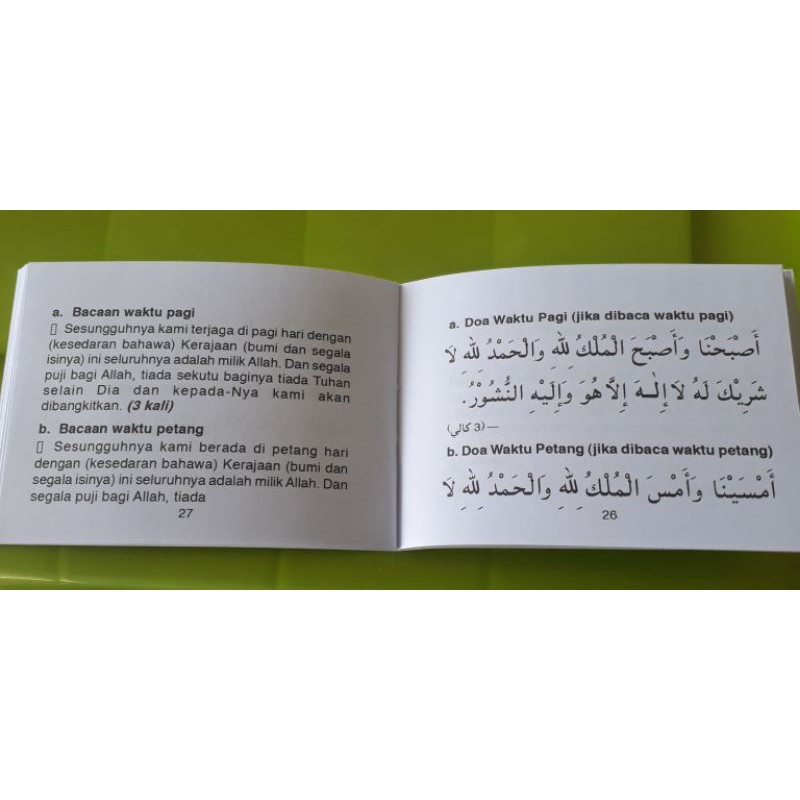 a. Bacaan waktu pagi
▯ Sesungguhnya kami terjaga di pagi hari dengan
(kesedaran bahawa) Kerajaan (bumi dan segala
isinya) ini seluruhnya adalah milik Allah. Dan segala
puji bagi Allah, tiada sekutu baginya tiada Tuhan
selain Dia dan kepada-Nya kami akan
dibangkitkan. (3 kali)
b. Bacaan waktu petang
▯ Sesungguhnya kami berada di petang hari
dengan (kesedaran bahawa) Kerajaan (bumi dan
segala isinya) ini seluruhnya adalah milik Allah. Dan
segala puji bagi Allah, tiada
27
a. Doa Waktu Pagi (jika dibaca waktu pagi)
أَصْبَحْنَا وَأَصْبَحَ الْمُلْكُ لِلّٰهِ وَالْحَمْدُ لِلّٰهِ لَا
شَرِيْكَ لَهُ لَا إِلٰـهَ إِلَّا هُوَ وَإِلَيْهِ النُّشُوْرُ.
—(3 كالي)
b. Doa Waktu Petang (jika dibaca waktu petang)
أَمْسَيْنَا وَأَمْسَ الْمُلْكُ لِلّٰهِ وَالْحَمْدُ لِلّٰهِ لَا
26